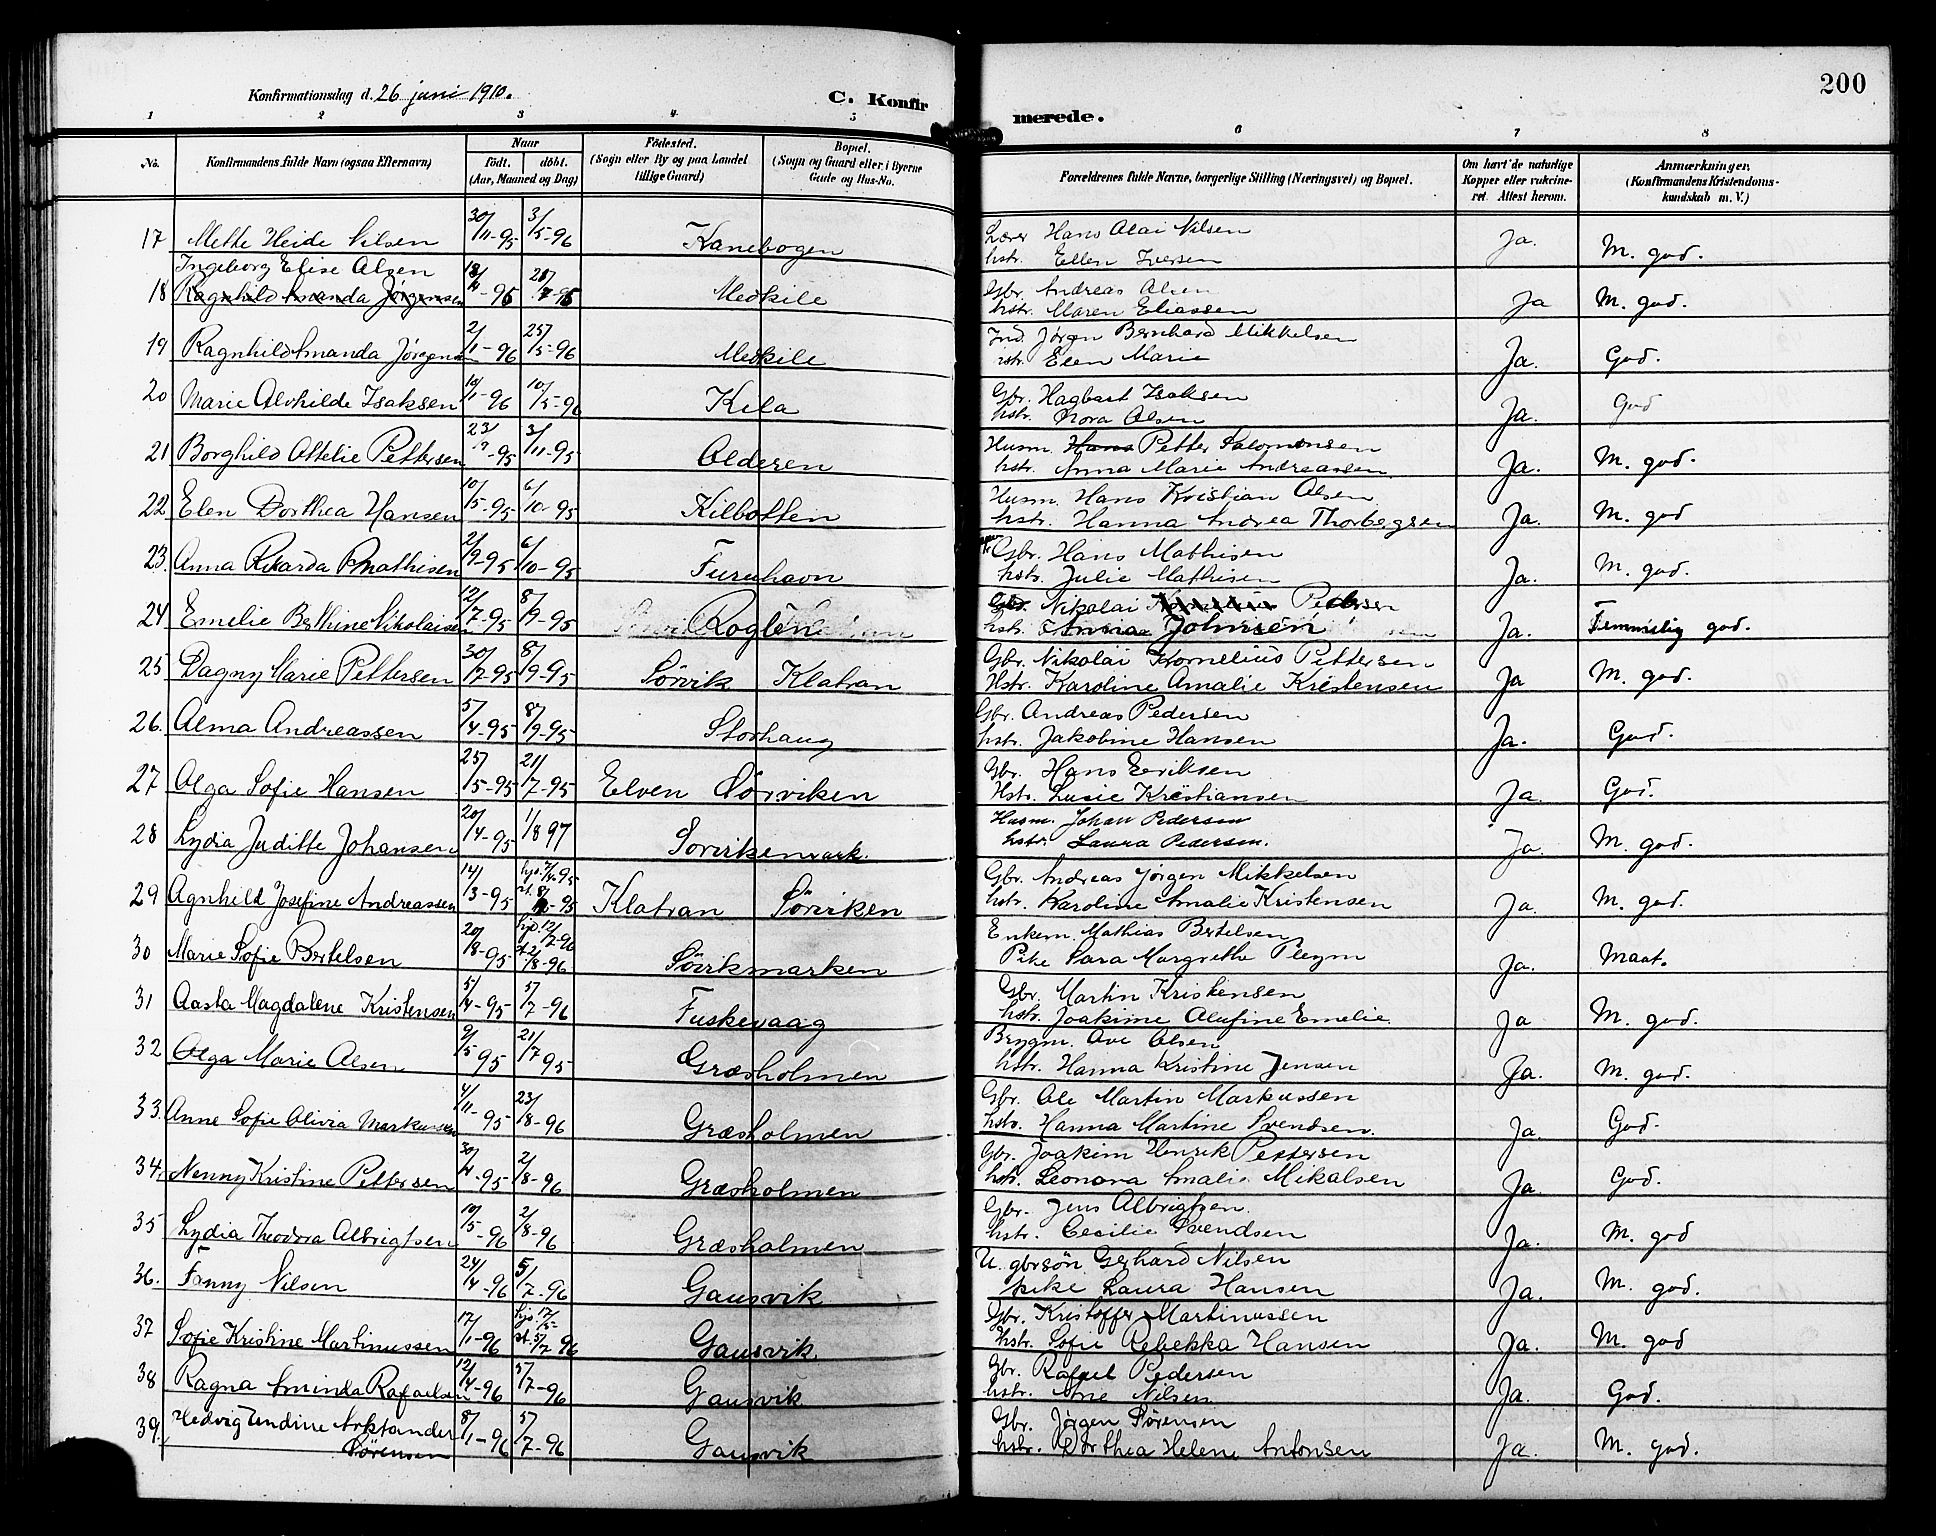 200
Konfirmationsdag d. 26 juni 1910.
C. Konfirmerede.
1 2 3 4 5 6 7 8
No. Konfirmandens fulde Navn (ogsaa Efternavn) Naar födt. döbt. (Aar, Maaned og Dag) Födested. (Sogn eller By og paa Landet tillige Gaard) Bopæl. (Sogn og Gaard eller i Byerne Gade og Hus-No. Forældrenes fulde Navne, borgerlige Stilling (Næringsvei) og Bopæl. Om havt de naturlige Kopper eller vakcineret. Attest herom. Anmærkninger. (Konfirmandens Kristendomskundskab m. V.)
17 Mette Heide Nilsen 30/11-95 3/5-96 Kanebogen Lærer Hans Olai Nilsen Ja. M. god.
hstr. Ellen Iversen
Ingeborg Elise Olsen
18 Ragnhild Amanda Jörgensen Medkile Gbr. Andreas Olsen Ja M. god.
hstr. Maren Eliassen
19 Ragnhild Amanda Jörgens 2/1-96 25/5-96 Medkile Ind. Jörgen Bernhard Mikkelsen Ja. God.
Elen Marie
20 Marie Alvhilde Isaksen 10/1-96 10/5-96 Kila Gbr. Hagbart Isaksen Ja. God
hstr. Nora Olsen
21 Borghild Ottelie Pettersen 23/9-95 3/11-95 Olderen Husm. Hans Petter Salomonsen Ja. M. god.
hstr. Anna Marie Andreassen
22. Elen Dorthea Hansen 10/5-95 6/10-95 Kilbotten Husm. Hans Kristian Olsen Ja. M. god
hstr. Hanna Andrea Thorbergsen
23. Anna Rikarda Mathisen 2/9-95 6/10-95 Furuhavn Gbr. Hans Mathisen Ja. M. god.
hstr. Julie Mathisen
24 Emelie Berthine Nikolaisen 12/7-95 8/9-95 Roglen Gbr. Nikolai Kornelius Pedersen Ja. Temmelig god.
hstr. Anna Johnsen
25 Dagny Marie Pettersen 30/7-95 8/9-95 Sörvik Klatran Gbr. Nikolai Kornelius Pettersen Ja M. god.
Hstr. Karoline Amalie Kristensen
26. Alma Andreassen 5/4-95 8/9-95 Storhaug Gbr. Andreas Pedersen Ja. God.
hstr. Jakobine Hansen
27 Olga Sofie Hansen 25/5-95 21/7-95 Elven Sörviken Gbr. Hans Eriksen Ja. God.
Hstr. Lusie Kristiansen
28 Lydia Juditte Johansen 20/4-95 1/8 97 Sörvikenmark. Husm. Johan Pedersen Ja. M. god.
hstr. Laura Pedersen.
29 Agnhild Josefine Andreassen 14/3-95 Klatran Sörviken Gbr. Andreas Jörgen Mikkelsen Ja. M. god.
hstr. Karoline Amalie Kristensen
30 Marie Sofie Bertelsen 20/8-95 hjd. 12/7-96 Sövikmarken Enkem. Mathias Bertelsen Ja. Maat.
st. 2/8-96 Pike Sara Margrethe Pleym
31 Aasta Magdalene Kristensen 5/4-95 5/7-96 Fuskevaag Gbr. Martin Kristensen Ja M. god.
hstr. Joakime Olufine Emelie.
32 Olga Marie Olsen 9/5 95 21/7 95 Græsholmen Brygm. Ove Olsen Ja. M. god.
hstr. Hanna Kristine Jensen
33. Anne Sofie Olivia Markussen 4/11-95 23/8-96 Græsholmen Gbr. Ole Martin Markussen Ja. God.
hstr. Hanna Martine Svendsen.
34. Nenny Kristine Pettersen 30/11-95 2/8-96 Græsholmen Gbr. Joakim Henrik Pettersen Ja. God.
hstr. Leonora Amalie Mikalsen
35 Lydia Theodora Albrigtsen 10/5-96 2/8-96 Græsholmen Gbr. Jens Albrigtsen. Ja. M. god
hstr. Cecilie Svendsen
36. Fanny Nilsen 24/4-96 5/7-96 Gausvik U. gbrsön Gerhard Nilsen Ja. M. god.
pike Laura Hansen
37 Sofie Kristine Martinussen 17/1-96 hjd. 17/5- Gausvik Gbr. Kristoffer Martinussen Ja. M. god
st. 5/7-96 hstr. Sofie Rebekka Hansen
38 Ragna Aminda Rafaelsen 12/4-96 5/7-96 Gausvik Gbr. Rafael Pedersen Ja. God.
hstr. Ane Nilsen
39. Hedvig Undine Arktander 8/1-96 5/7-96 Gausvik Gbr. Jörgen Sörensen Ja. M. god.
Sörensen hstr. Dorthea Helene Antonsen